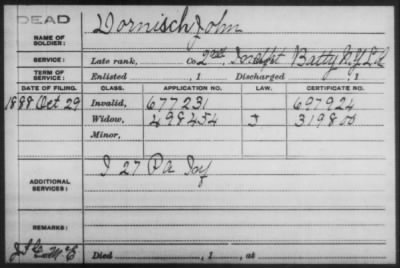 DEAD
NAME OF SOLDIER: Dornisch John
SERVICE: Late rank, Co. 2nd Indpt Batty N.Y. L.A.
TERM OF SERVICE: Enlisted , 1 Discharged , 1
DATE OF FILING. CLASS. APPLICATION NO. LAW. CERTIFICATE NO.
1888 Oct 29 Invalid, 677231 697924
Widow, 498454 319800
Minor,
ADDITIONAL SERVICES: I 27 Pa Inf
REMARKS:
Died , 1 , at